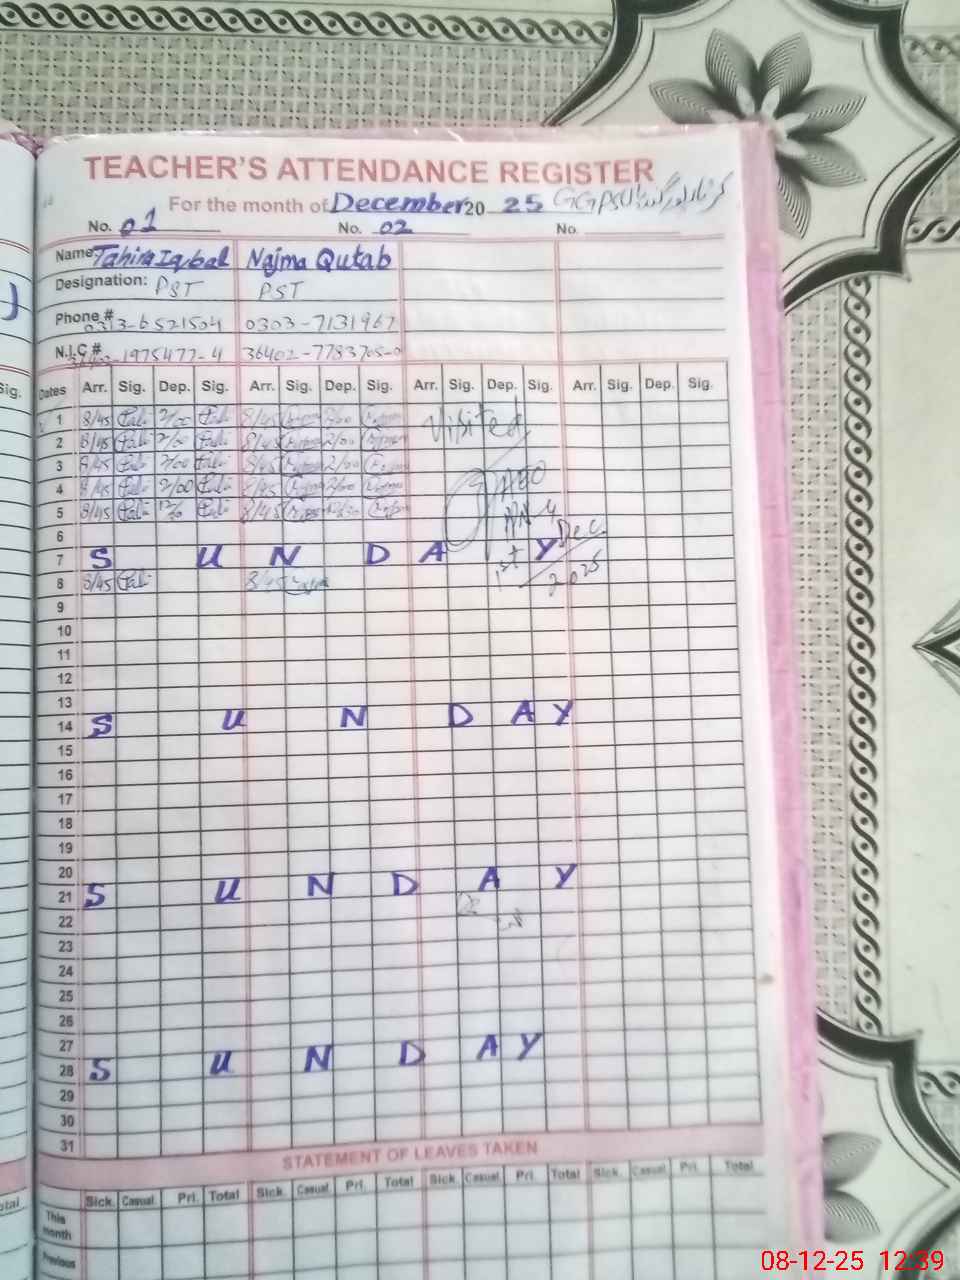 TEACHER'S ATTENDANCE REGISTER
For the month of December 20 25 GGPS
No. 01 No. 02 No.
Name: Tahira Iqbal Najma Qutab
Designation: PST PST
Phone # 0313-6521504 0303-7131967
N.I.C # -1975477-4 36402-7783705-0
Dates Arr. Sig. Dep. Sig. Arr. Sig. Dep. Sig. Arr. Sig. Dep. Sig. Arr. Sig. Dep. Sig.
1 8/45 2/00 8/45 2/00 Visited
2 8/45 2/00 8/45 2/00
3 8/45 2/00 8/45 2/00
4 8/45 2/00 8/45 2/00 AEO
5 8/45 8/45
6 1st Dec.
7 S U N D A Y 2025
8 8/45 8/45
9
10
11
12
13
14 S U N D A Y
15
16
17
18
19
20
21 S U N D A Y
22
23
24
25
26
27
28 S U N D A Y
29
30
31
STATEMENT OF LEAVES TAKEN
Sick. Casual Pri. Total Sick. Casual Pri. Total Sick. Casual Pri. Total Sick. Casual Pri. Total
This month
Previous
08-12-25 12:39